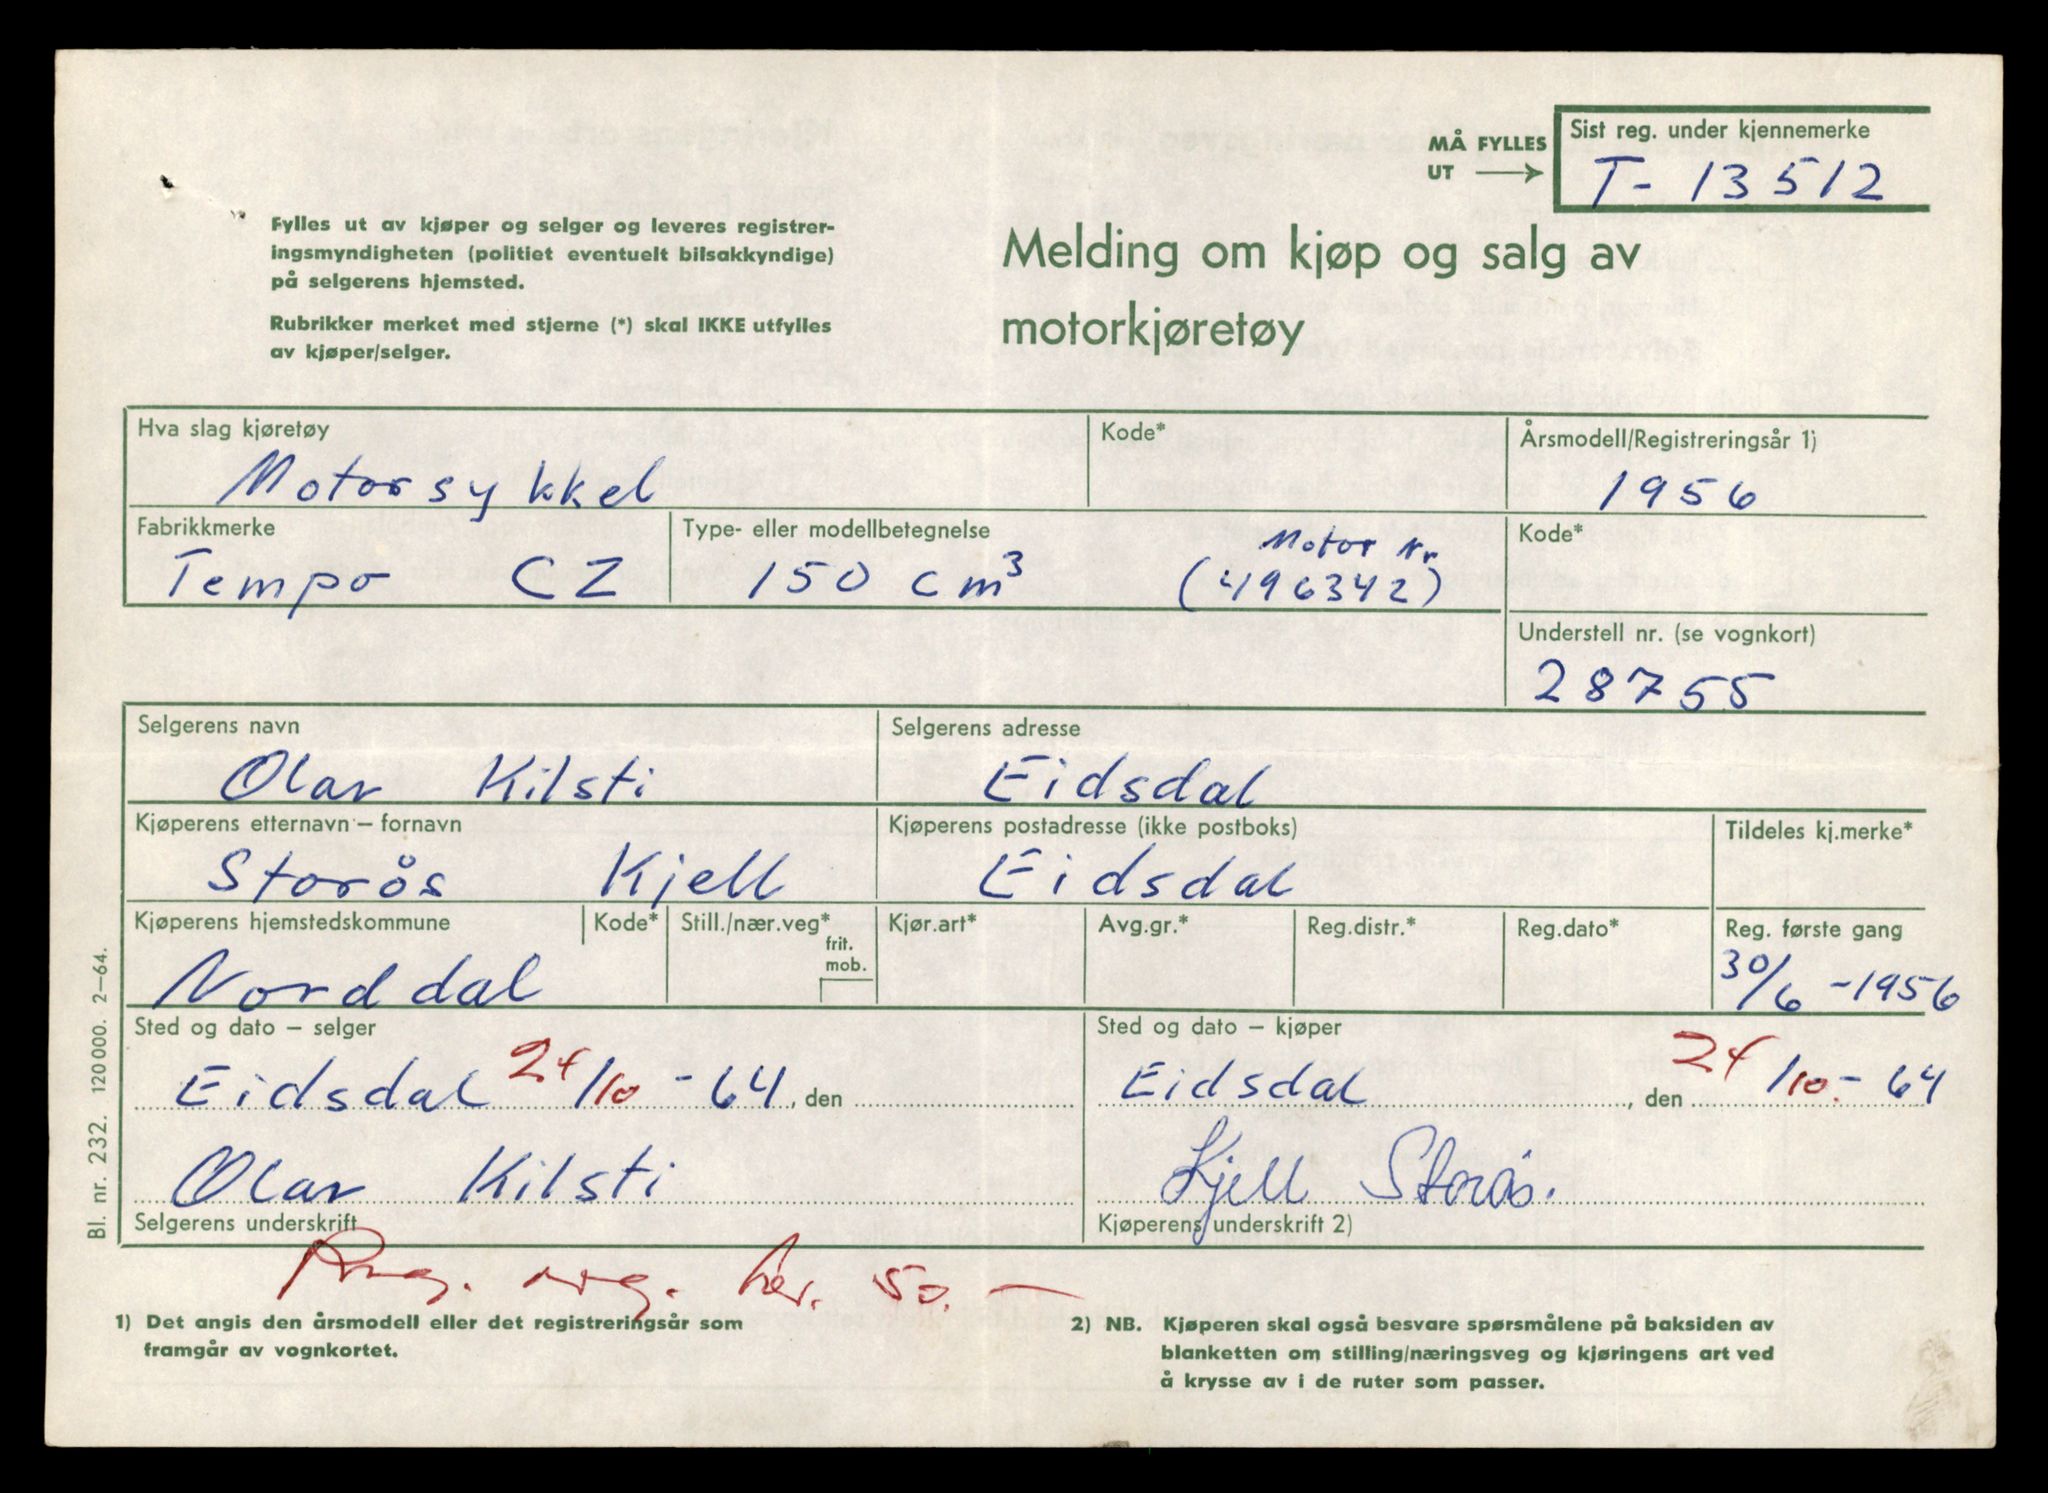 MÅ FYLLES
UT
Sist reg. under kjennemerke
T- 13512
Fylles ut av kjøper og selger og leveres registrer-
ingsmyndigheten (politiet eventuelt bilsakkyndige)
på selgerens hjemsted.
Rubrikker merket med stjerne (*) skal IKKE utfylles
av kjøper/selger.
Melding om kjøp og salg av
motorkjøretøy
Hva slag kjøretøy
Motorsykkel
Kode*
Årsmodell/Registreringsår 1)
1956
Fabrikkmerke
Tempo CZ
Type- eller modellbetegnelse
150 cm³
Motor Nr
(496342)
Kode*
Understell nr. (se vognkort)
28755
Selgerens navn
Olav Kilsti
Selgerens adresse
Eidsdal
Kjøperens etternavn – fornavn
Storås Kjell
Kjøperens postadresse (ikke postboks)
Eidsdal
Tildeles kj.merke*
Kjøperens hjemstedskommune
Norddal
Kode*
Still./nær.veg*
frit.
mob.
Kjør.art*
Avg.gr.*
Reg.distr.*
Reg.dato*
Reg. første gang
30/6 -1956
Sted og dato – selger
Eidsdal 24/10 - 64, den
Sted og dato – kjøper
Eidsdal, den 24/10.- 64
Olav Kilsti
Selgerens underskrift
Kjell Storås.
Kjøperens underskrift 2)
50.-
1) Det angis den årsmodell eller det registreringsår som
framgår av vognkortet.
2) NB. Kjøperen skal også besvare spørsmålene på baksiden av
blanketten om stilling/næringsveg og kjøringens art ved
å krysse av i de ruter som passer.
Bl. nr. 232. 120 000. 2–64.